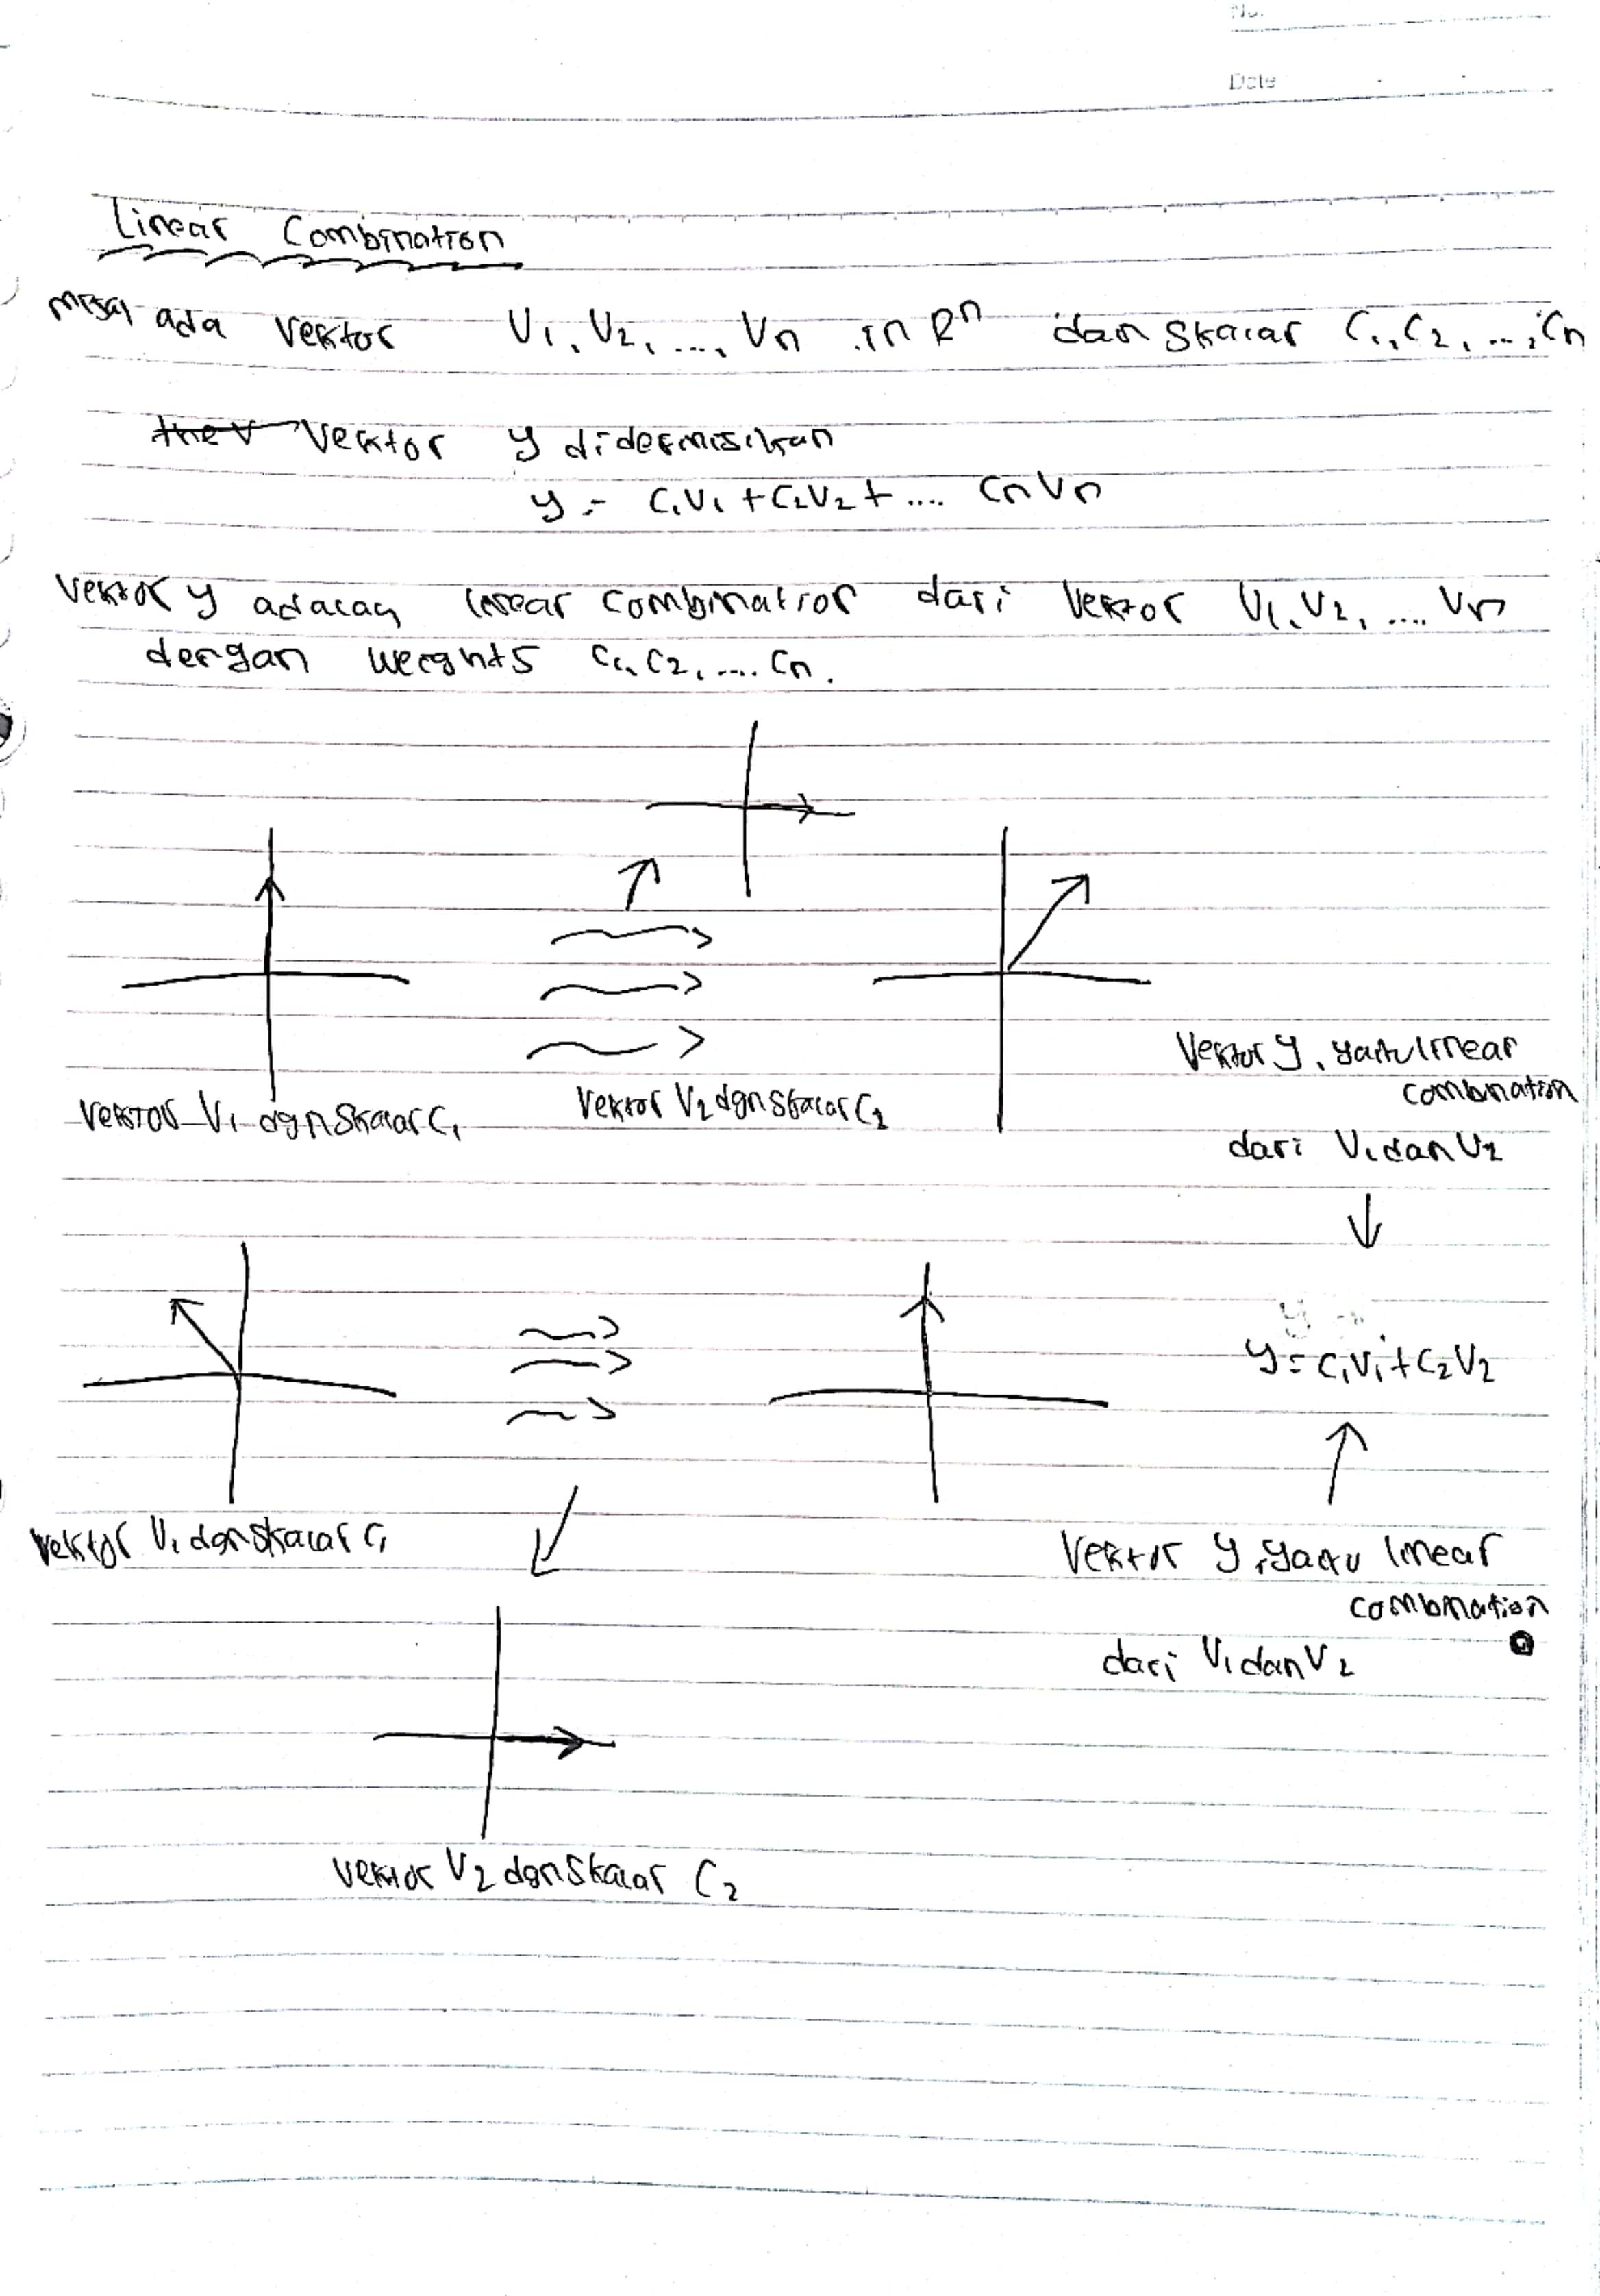 No.
Date
Linear Combination
misal ada vektor V1, V2, ..., Vn in R^n dan skalar C1, C2, ..., Cn
the v vektor y didefinisikan
y = C1V1 + C2V2 + .... CnVn
vektor y adalah linear combination dari vektor V1, V2, .... Vn
dengan weights C1, C2, .... Cn.
vektor V1 dgn skalar C1
vektor V2 dgn skalar C2
vektor y, yaitu linear
combination
dari V1 dan V2
y = C1V1 + C2V2
vektor V1 dgn skalar C1
vektor y, yaitu linear
combination
dari V1 dan V2
vektor V2 dgn skalar C2